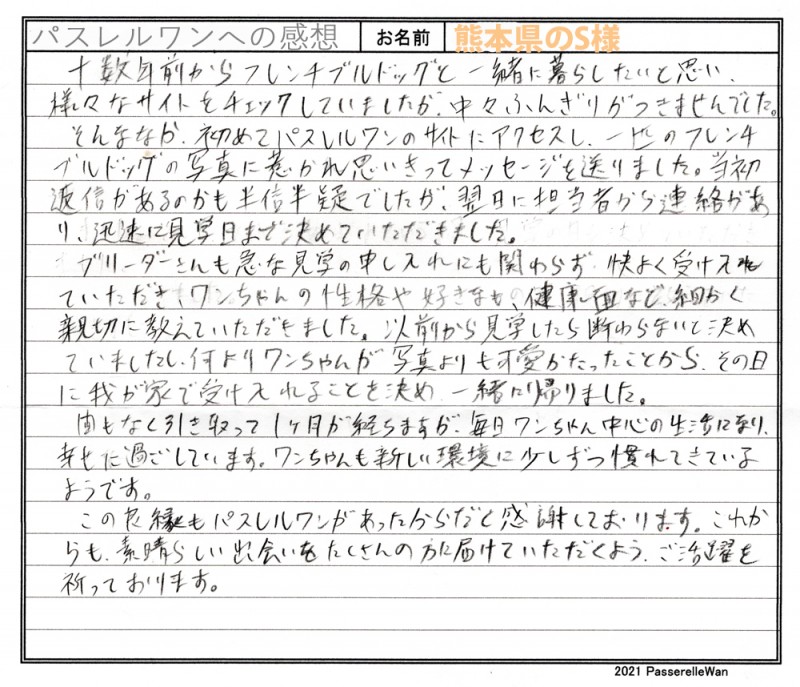 パスレルワンへの感想 お名前 熊本県のS様
十数年前からフレンチブルドッグと一緒に暮らしたいと思い、
様々なサイトをチェックしていましたが、中々ふんぎりがつきませんでした。
そんななか、初めてパスレルワンのサイトにアクセスし、一匹のフレンチ
ブルドッグの写真に惹かれ思いきってメッセージを送りました。当初
返信があるのかも半信半疑でしたが、翌日に担当者から連絡があ
り、迅速に見学日まで決めていただきました。
ブリーダーさんも急な見学の申し入れにも関わらず、快よく受け入れ
ていただき、ワンちゃんの性格や好きなもの、健康面など、細かく
親切に教えていただきました。以前から見学したら断わらないと決め
ていましたし、何よりワンちゃんが写真よりも可愛かたったことから、その日
に我が家で受け入れることを決め、一緒に帰りました。
間もなく引き取って1ヶ月が経ちますが、毎日ワンちゃん中心の生活になり、
幸せに過ごしています。ワンちゃんも新しい環境に少しずつ慣れてきている
ようです。
この良縁もパスレルワンがあったからだと感謝しております。これか
らも、素晴らしい出会いをたくさんの方に届けていただくよう、ご活躍を
祈っております。
2021 PasserelleWan